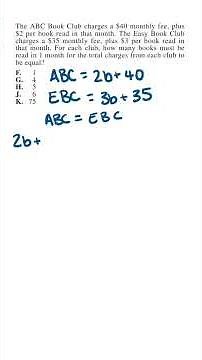 The ABC Book Club charges a $40 monthly fee, plus
$2 per book read in that month. The Easy Book Club
charges a $35 monthly fee, plus $3 per book read in
that month. For each club, how many books must be
read in 1 month for the total charges from each club to
be equal?
F. 1
G. 4
H. 5
J. 6
K. 75
ABC = 2b + 40
EBC = 3b + 35
ABC = EBC
2b +